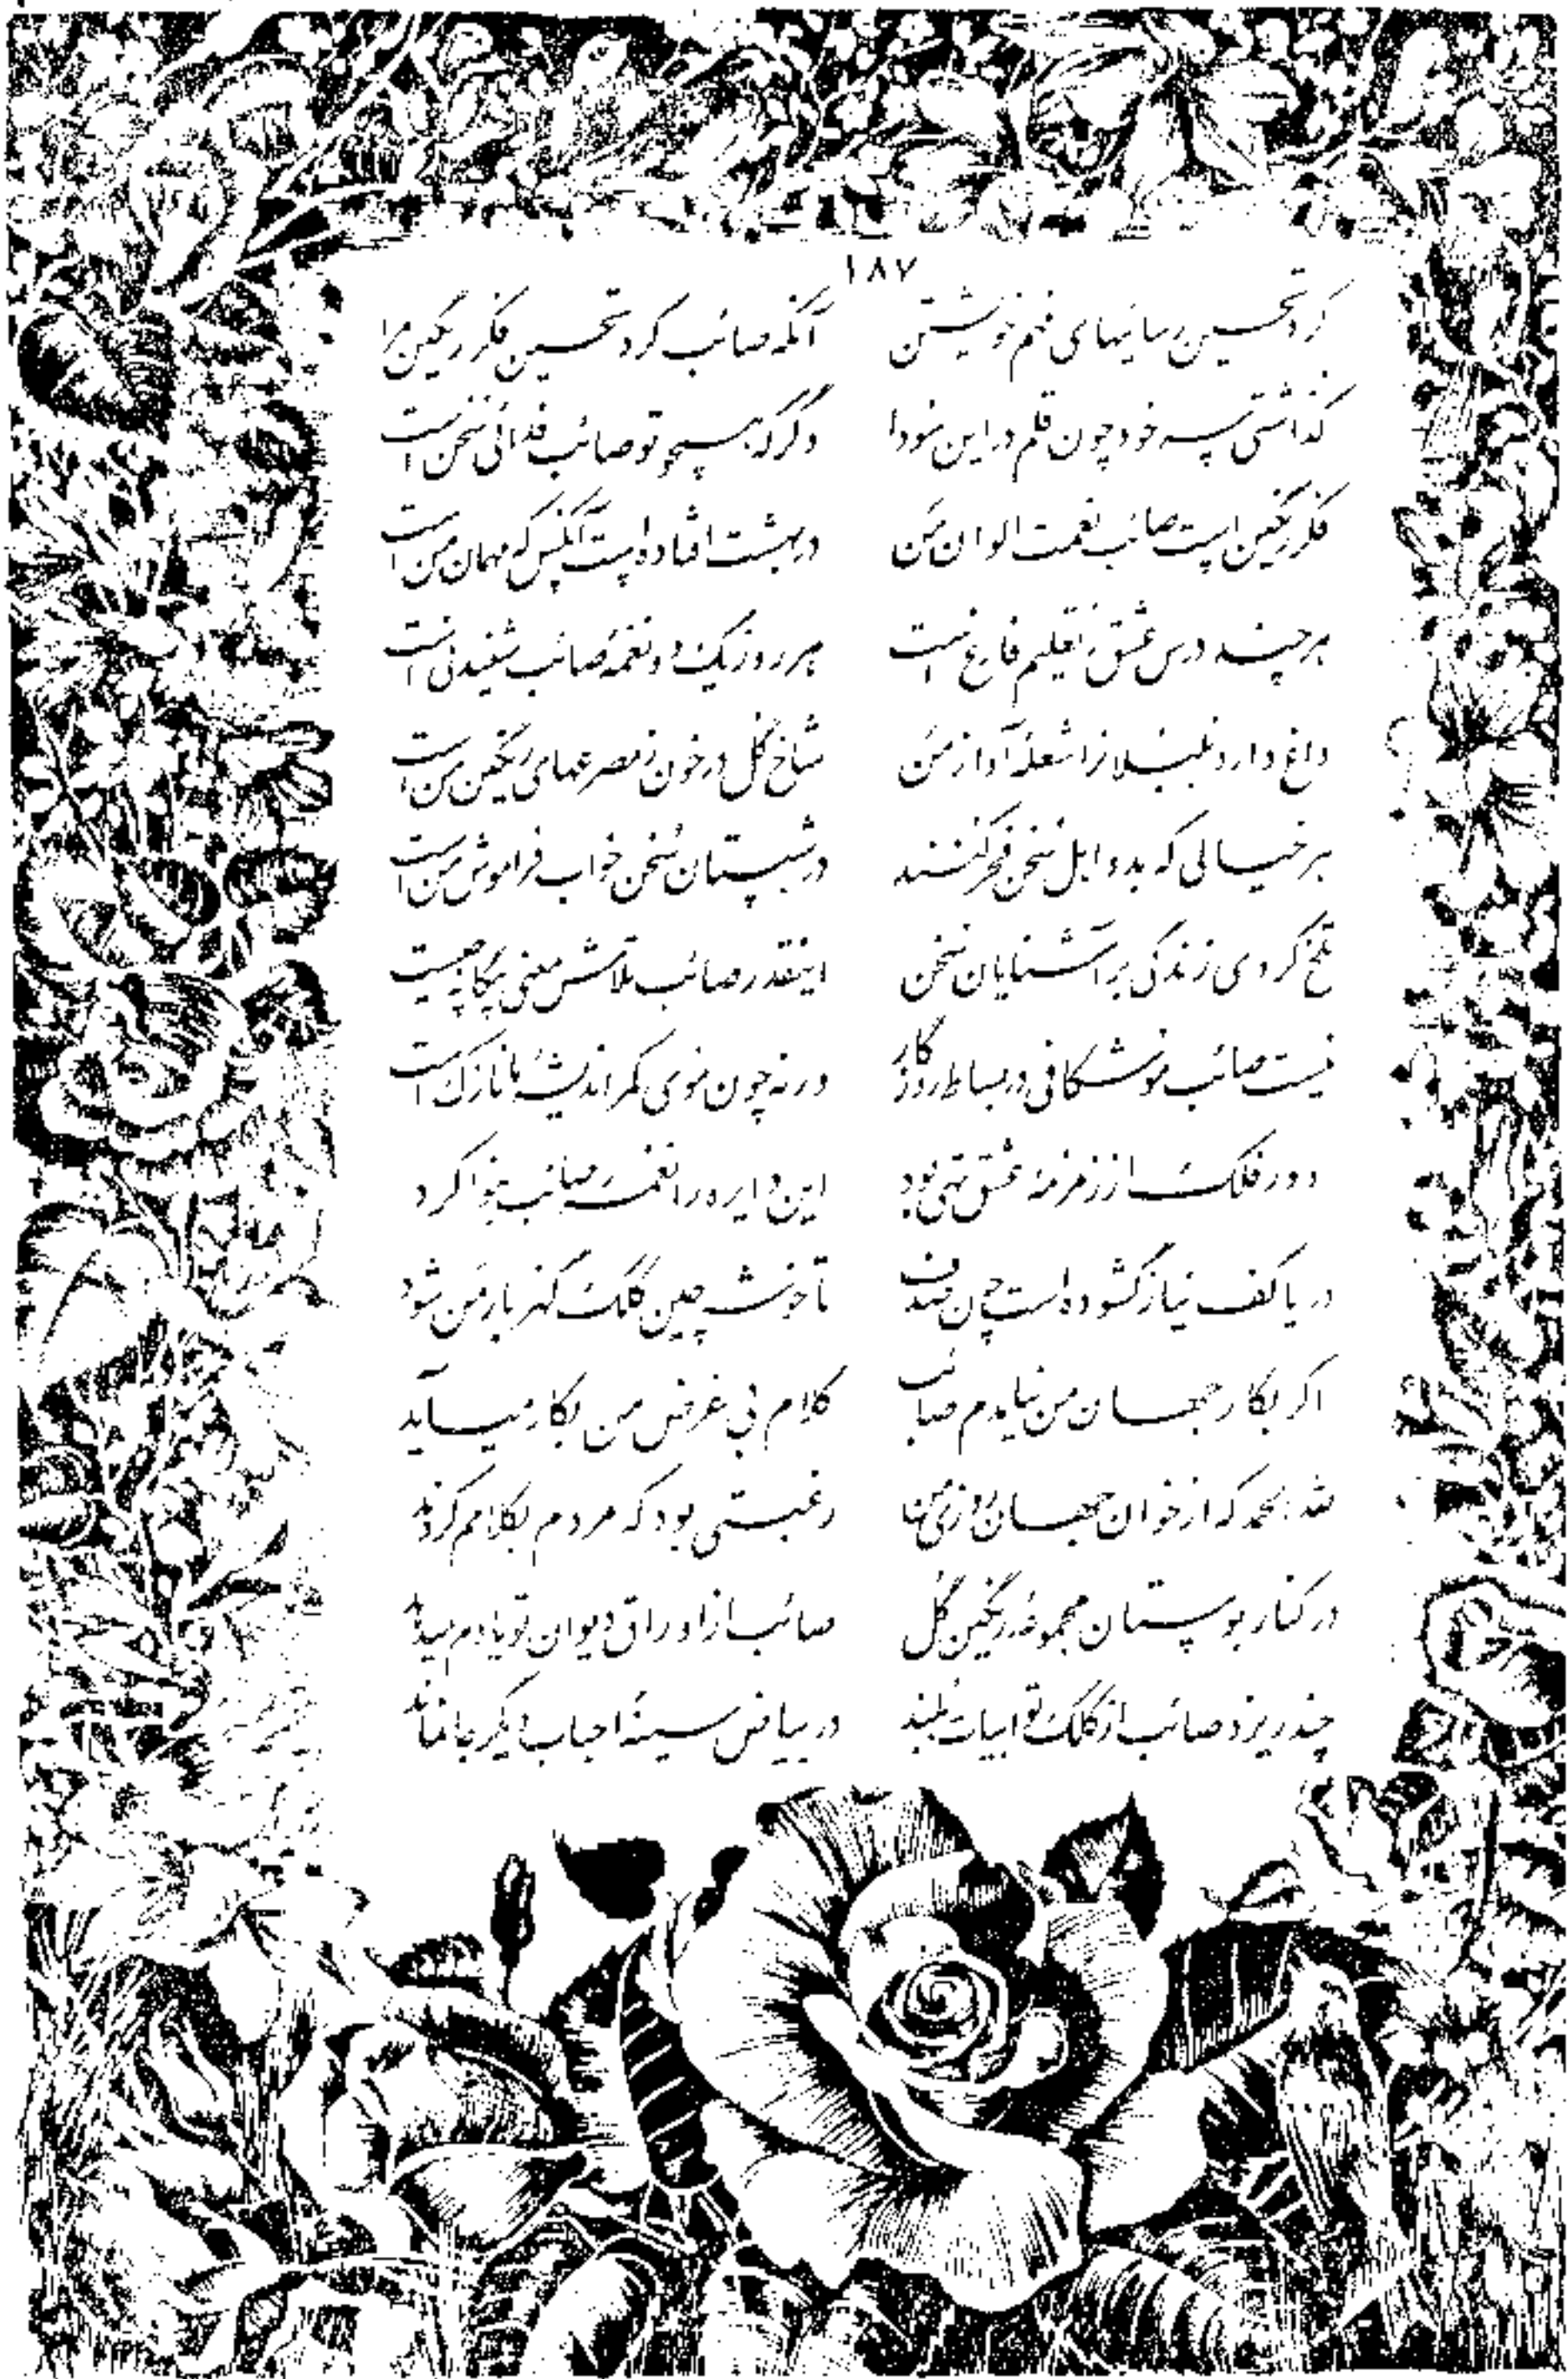 ۱۸۷
کرد تحسین رسائیهای فهم خویشتن آنکه صائب کرد تحسین فکر رنگین مرا
گذاشتی سر خود چون قلم در این سودا دگر که همچو تو صائب فدائی سخن است
فکر رنگین است صائب نعمت الوان من در بهشت افتاده است آنکس که مهمان من است
هر چند درس عشق ز تعلیم فارغ است هر روز یک دو نغمه صائب شنیدنی است
داغ دارد بلبلان را شعله آواز من شاخ گل در خون ز مصرعهای رنگین من است
هر خیالی که بدو اهل سخن فخر کنند در شبستان سخن خواب فراموش من است
تلخ کردی زندگی بر آشنایان سخن اینقدر صائب تلاش معنی بیگانه چیست
نیست صائب موشکافی در بساط روزگار ورنه چون موی کمر اندیشه ما نازک است
دور فلک از زمزمه عشق تهی بود این دایره را نغمه صائب بنوا کرد
دریا کف نیاز گشوده است چون صدف تا خوشه چین کلک گهربار من شود
اگر بکار جهان من نیایدم صائب کلام بی غرض من بکار میآید
لله الحمد که از خوان جهان روزی ما رغبتی بود که مردم بکلامم کردند
در کنار بوستان مجموعه رنگین گل صائب از اوراق دیوان تو یادم میدهد
چند ریزد صائب از کلک تو ابیات بلند در بیاض سینه احباب دیگر جا نماند